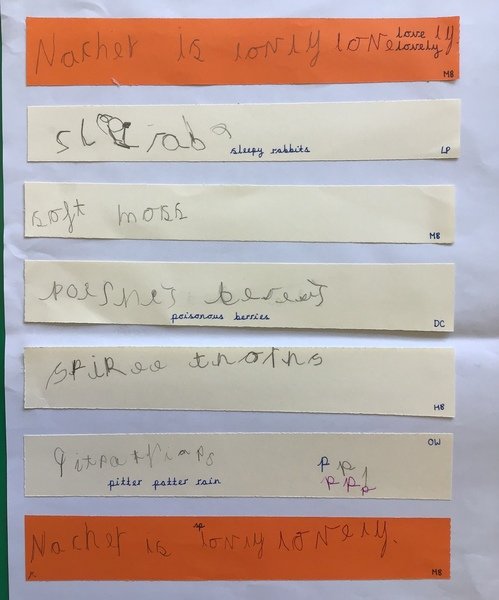 Nacher is lonly lone love ly.
lovely
MB
slrab
sleepy rabbits LP
soft moss
MB
poisnes bereets
poisonous berries
DC
spikee thorns
MB
OW
pitpatriaps
pitter patter rain
p p
p p p
Nacher is sp lonly lonely.
MB